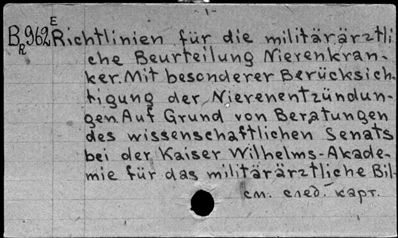 B 962 E Richtlinien für die militärärztli
R
che Beurteilung Nierenkran-
ker. Mit besonderer Berücksich-
tigung der Nierenentzündun-
gen. Auf Grund von Beratungen
des wissenschaftlichen Senats
bei der Kaiser Wilhelms-Akade-
mie für das militärärztliche Bil-
см. след. карт.